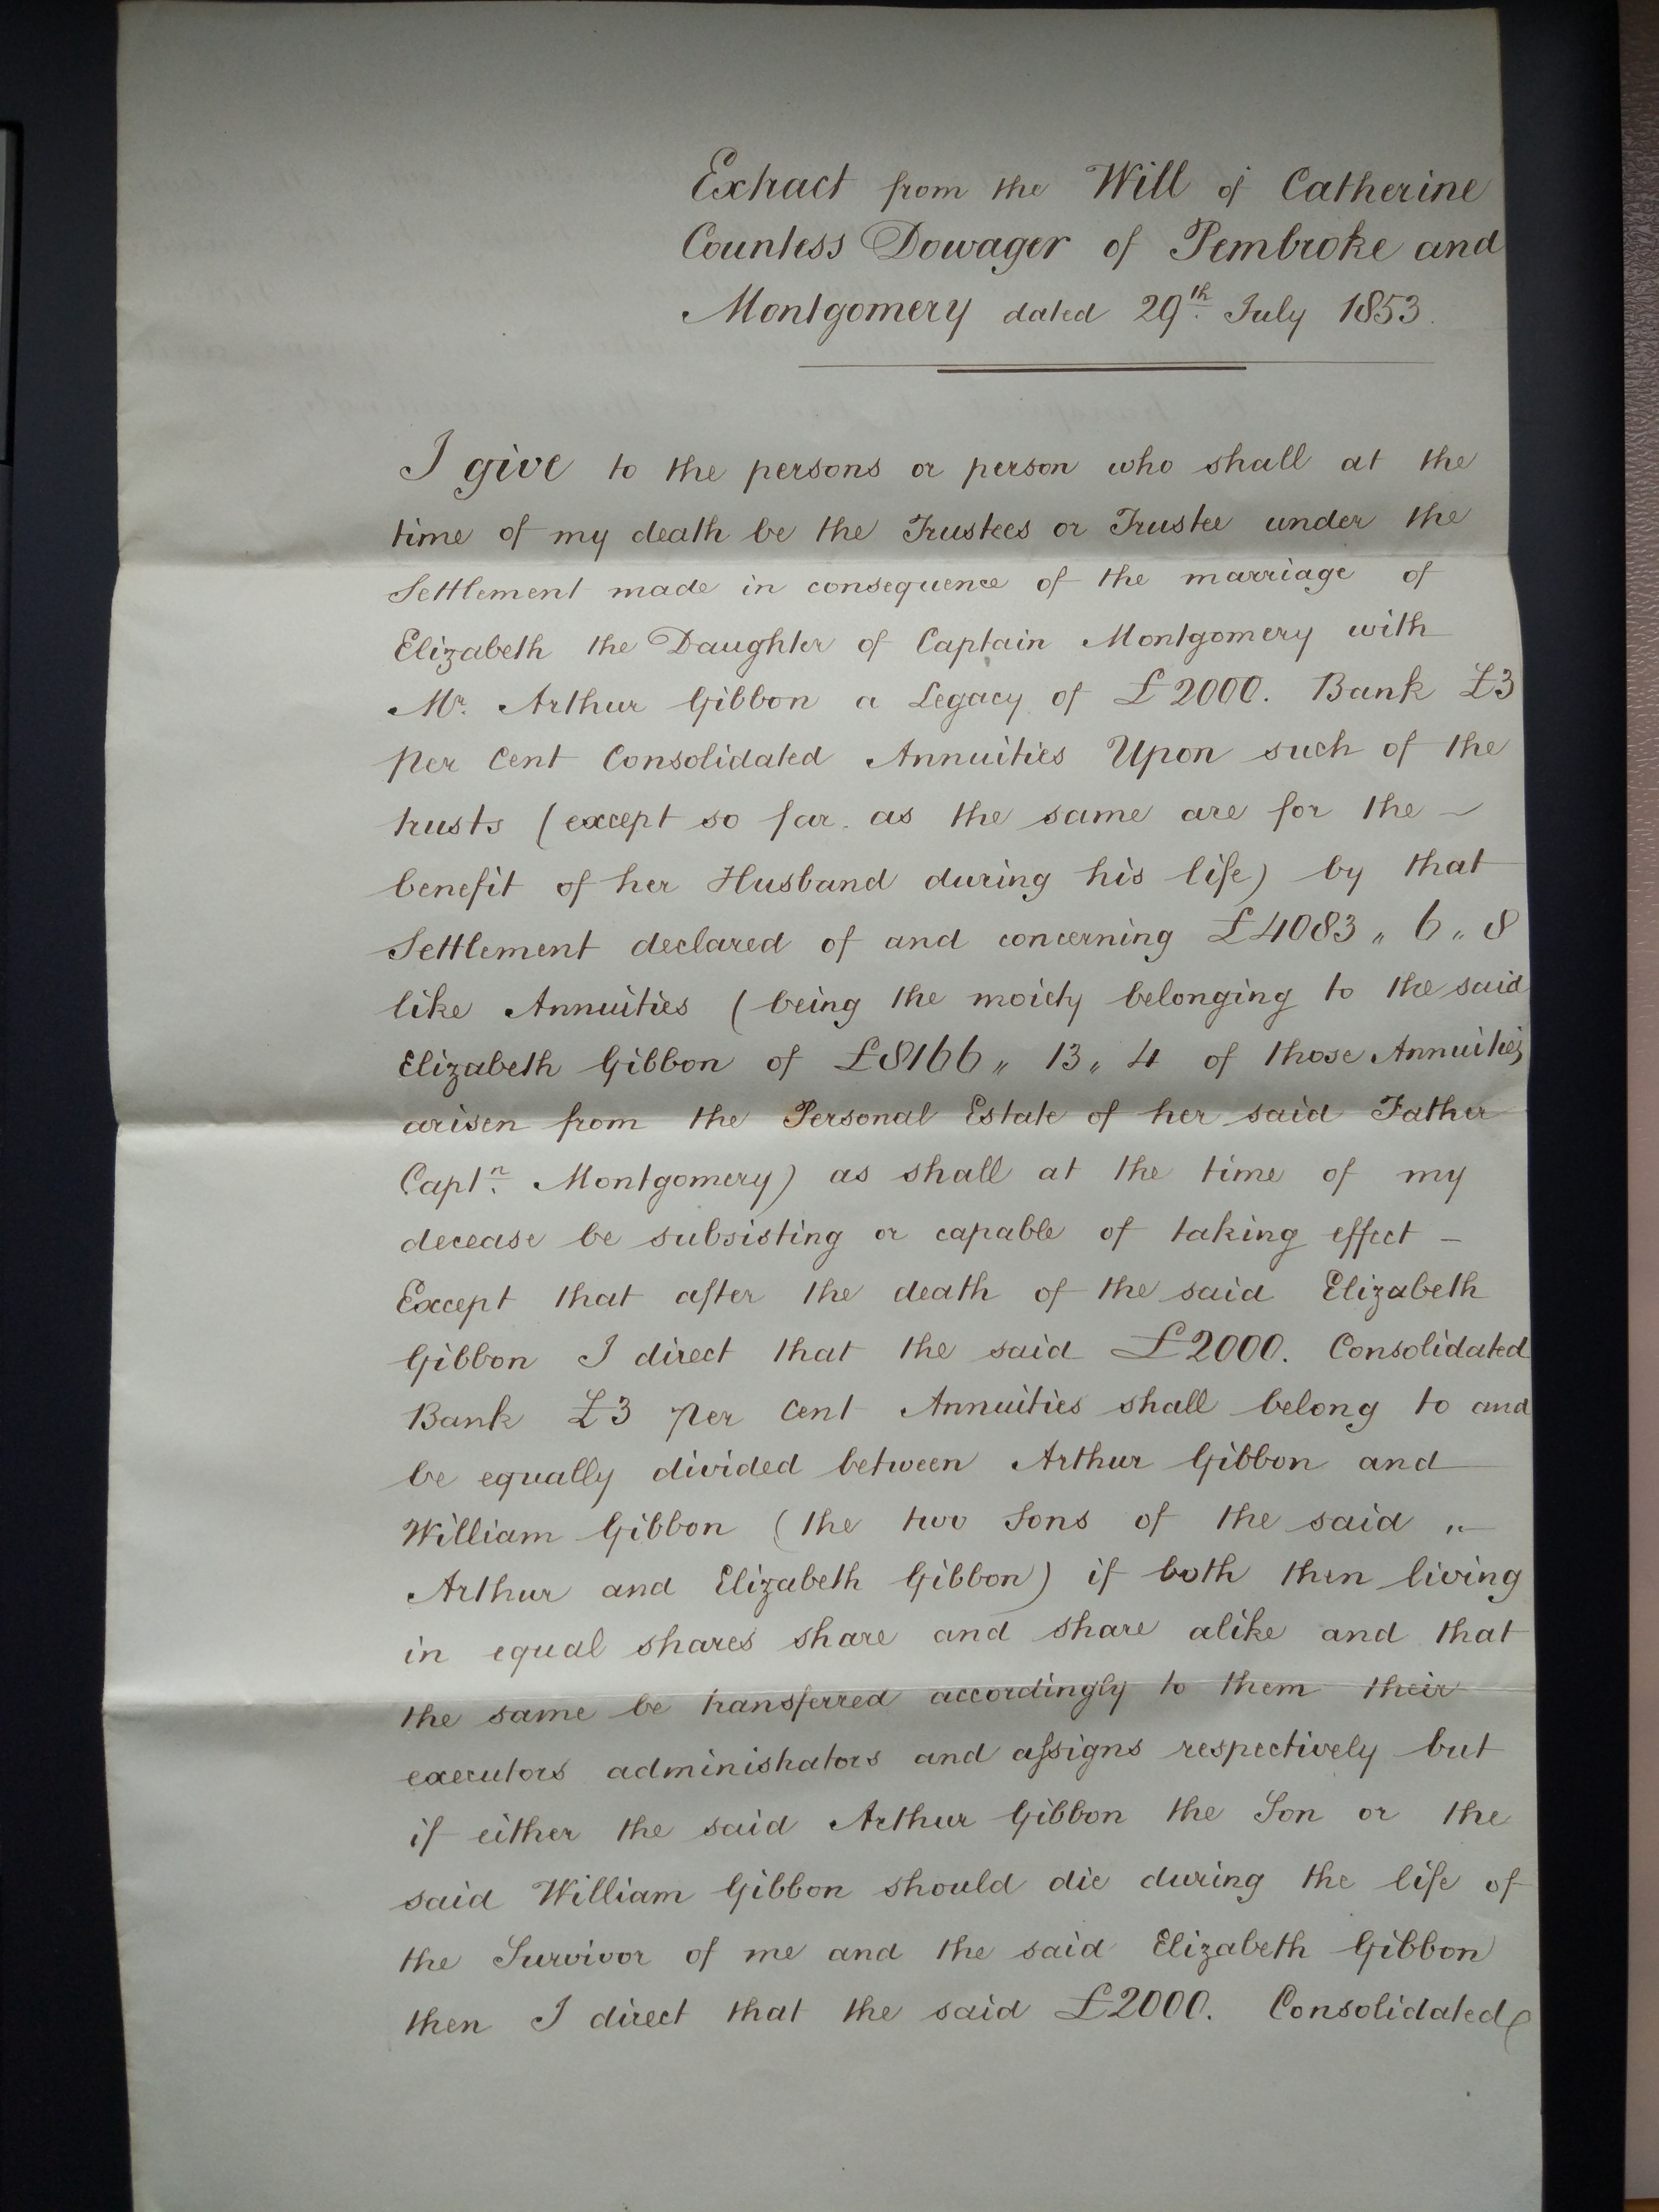 Extract from the Will of Catherine
Countess Dowager of Pembroke and
Montgomery dated 29th. July 1853.
I give to the persons or person who shall at the
time of my death be the Trustees or Trustee under the
Settlement made in consequence of the marriage of
Elizabeth the Daughter of Captain Montgomery with
Mr. Arthur Gibbon a Legacy of £2000. Bank £3
per Cent Consolidated Annuities Upon such of the
trusts (except so far as the same are for the –
benefit of her Husband during his life) by that
Settlement declared of and concerning £4083 „ 6 „ 8
like Annuities (being the moiety belonging to the said
Elizabeth Gibbon of £8166 „ 13 „ 4 of those Annuities
arisen from the Personal Estate of her said Father
Captn. Montgomery) as shall at the time of my
decease be subsisting or capable of taking effect –
Except that after the death of the said Elizabeth
Gibbon I direct that the said £2000. Consolidated
Bank £3 per Cent Annuities shall belong to and
be equally divided between Arthur Gibbon and
William Gibbon (the two Sons of the said „–
Arthur and Elizabeth Gibbon) if both then living
in equal shares share and share alike and that
the same be transferred accordingly to them their
executors administrators and assigns respectively but
if either the said Arthur Gibbon the Son or the
said William Gibbon should die during the life of
the Survivor of me and the said Elizabeth Gibbon
then I direct that the said £2000. Consolidated